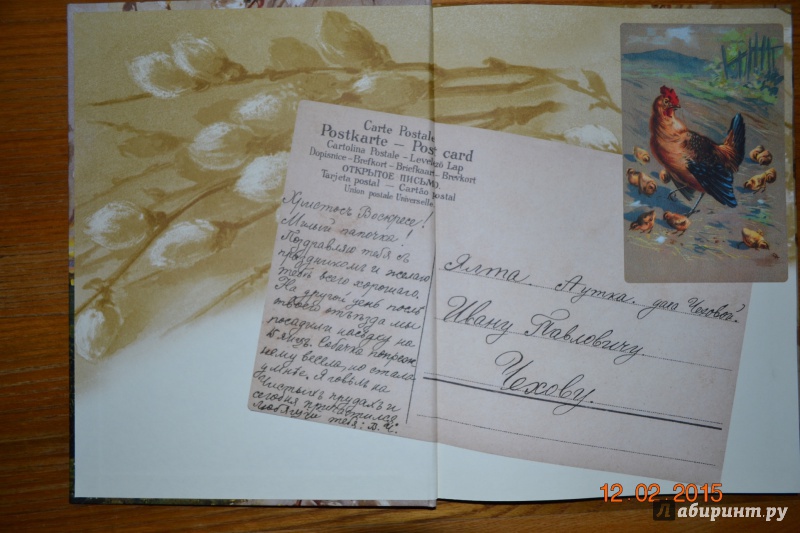 Carte Postale
Postkarte – Post card
Cartolina Postale - Levelező Lap
Dopisnice - Brefkort - Briefkaart - Brevkort
ОТКРЫТОЕ ПИСЬМО.
Tarjeta postal — Cartão postal
Union postale Universelle
Христосъ Воскресе!
Милый папочка!
Поздравляю тебя съ
праздникомъ и желаю
тебѣ всего хорошаго.
На другой день послѣ
твоего отъѣзда мы
посадили насѣдку на
яицъ. Собачка попреж-
нему весела, но стала
умнѣе. Я говѣлъ на
Чистыхъ прудахъ и
сегодня пріобщился.
Любящій тебя: В. Ч.
Ялта. Аутка. дача Чеховой.
Ивану Павловичу
Чехову.
12.02.2015
Лабиринт.ру